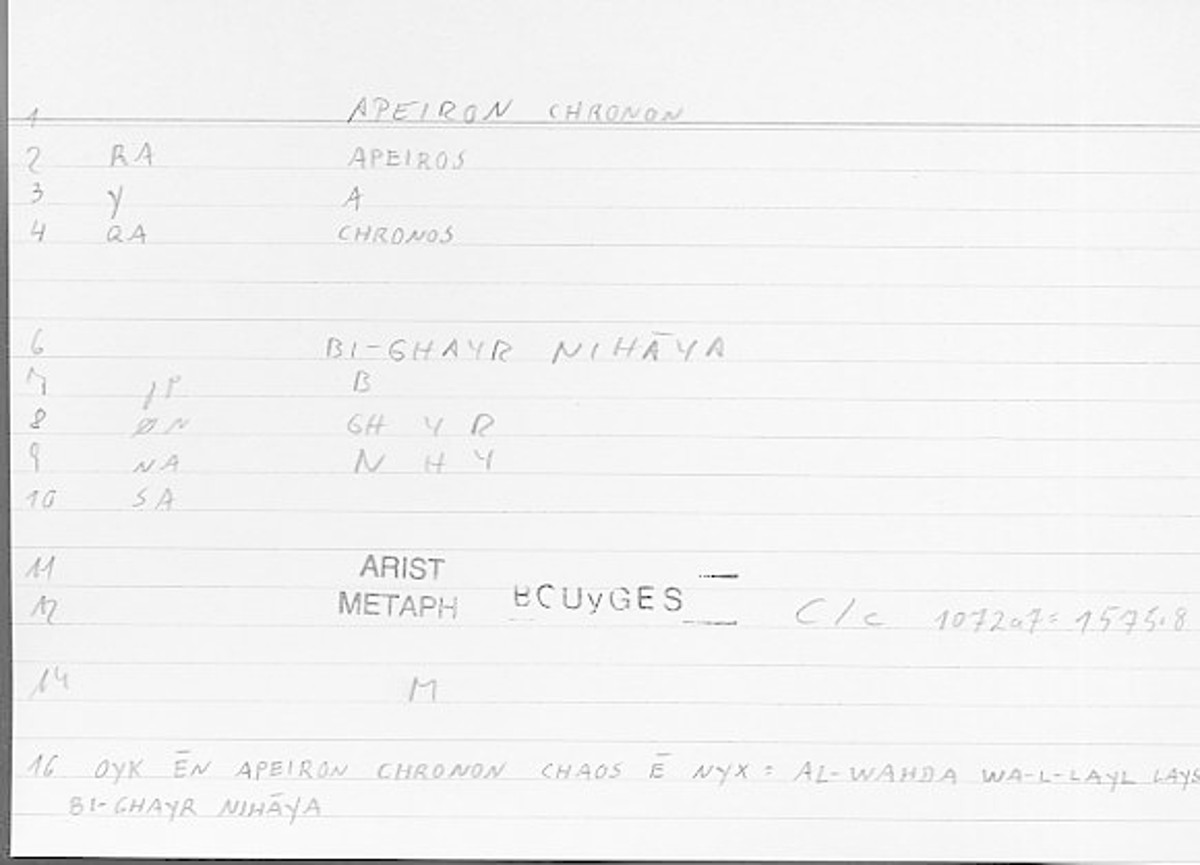 1 APEIRON CHRONON
2 RA APEIROS
3 y A
4 QA CHRONOS
6 BI-GHAYR NIHĀYA
7 JP B
8 ØN GH Y R
9 NA N H Y
10 SA
11 ARIST
12 METAPH BOUyGES C/c 1072a7= 1575.8
14 M
16 OYK ĒN APEIRON CHRONON CHAOS Ē NYX = AL-WAHDA WA-L-LAYL LAYS
BI-GHAYR NIHĀYA